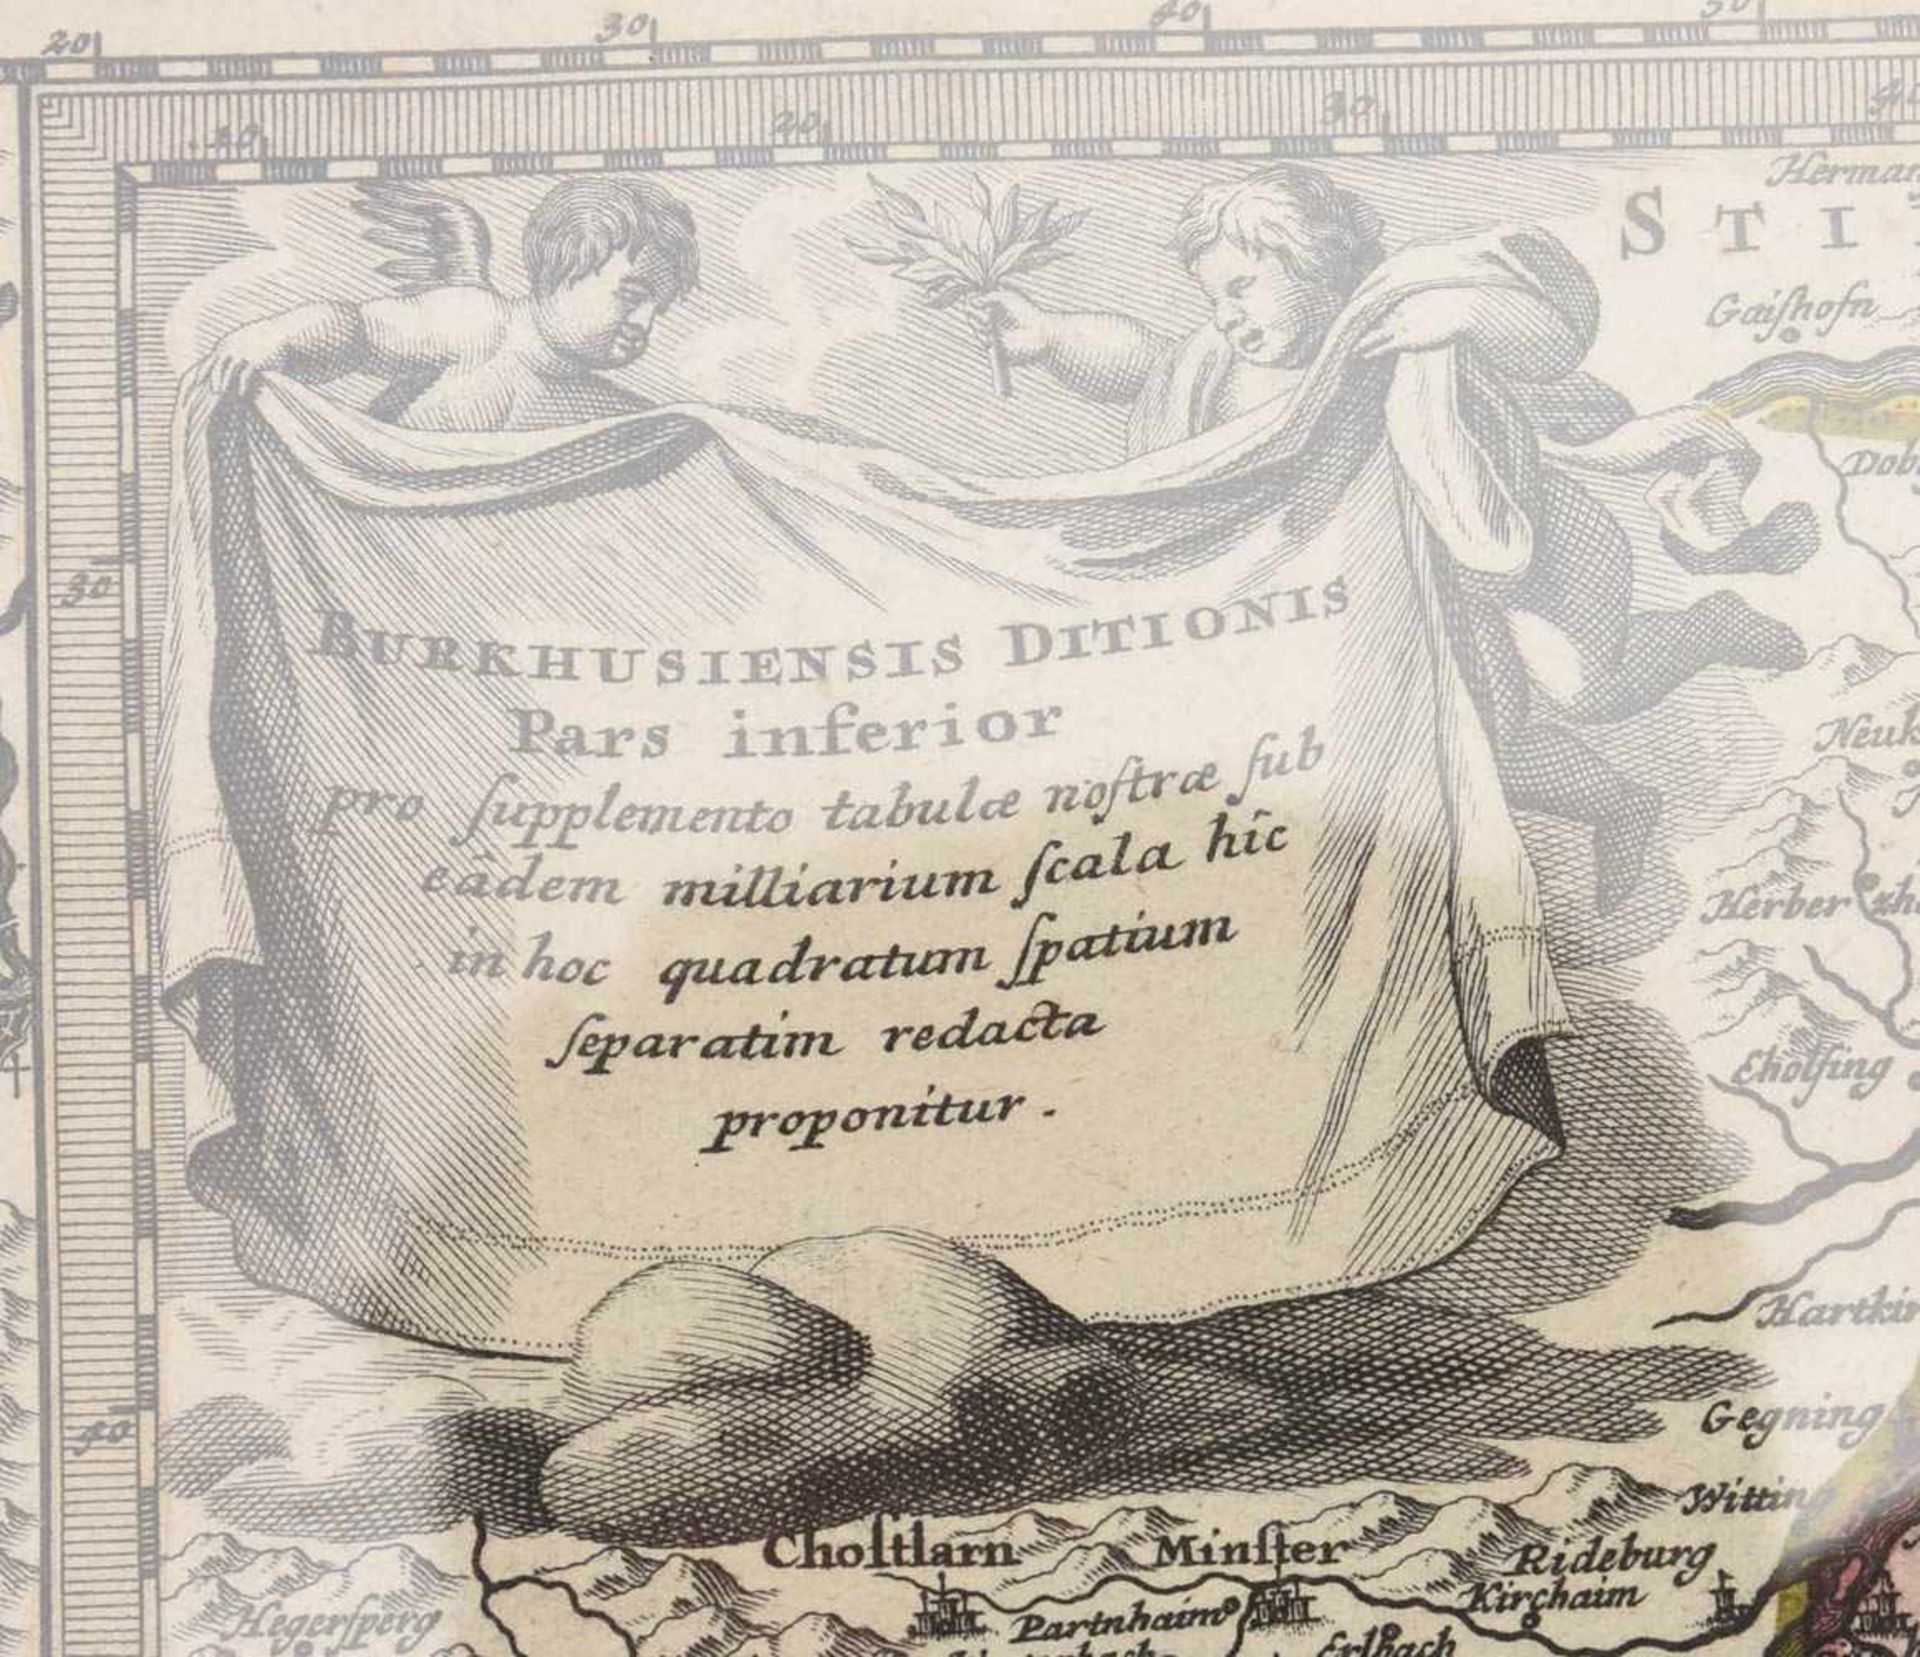 20 30 40 50
10 20 30 40
Herman
STI
Gaiſhofn
Dob
30
BURKHUSIENSIS DITIONIS
Pars inferior
pro ſupplemento tabulæ noſtræ ſub
eâdem milliarium ſcala hîc
in hoc quadratum ſpatium
ſeparatim redacta
proponitur.
Neuk
Herber
Eholſing
Hartkir
40
Gegning
Witting
Choſtlarn Minſter Rideburg
Kirchaim
Hegerſperg Partnhaim
Erlbach